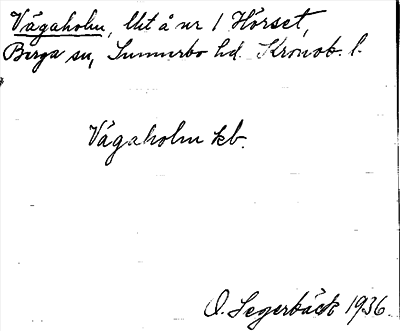 Vågaholm, lht å nr 1 Hörset,
Berga sn, Sunnerbo hd. Kronob. l.
Vågaholm kb.
O. Segerbäck 1936.